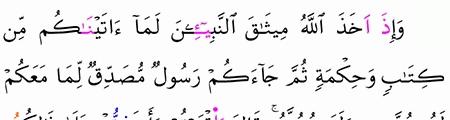 وَإِذَ اَخَذَ اَللَّهُ مِيثَٰقَ اَلنَّبِيٓـِٕۧنَ لَمَآ ءَاتَيْنَٰكُم مِّن
كِتَٰبٖ وَحِكْمَةٖ ثُمَّ جَآءَكُمْ رَسُولٞ مُّصَدِّقٞ لِّمَا مَعَكُمْ